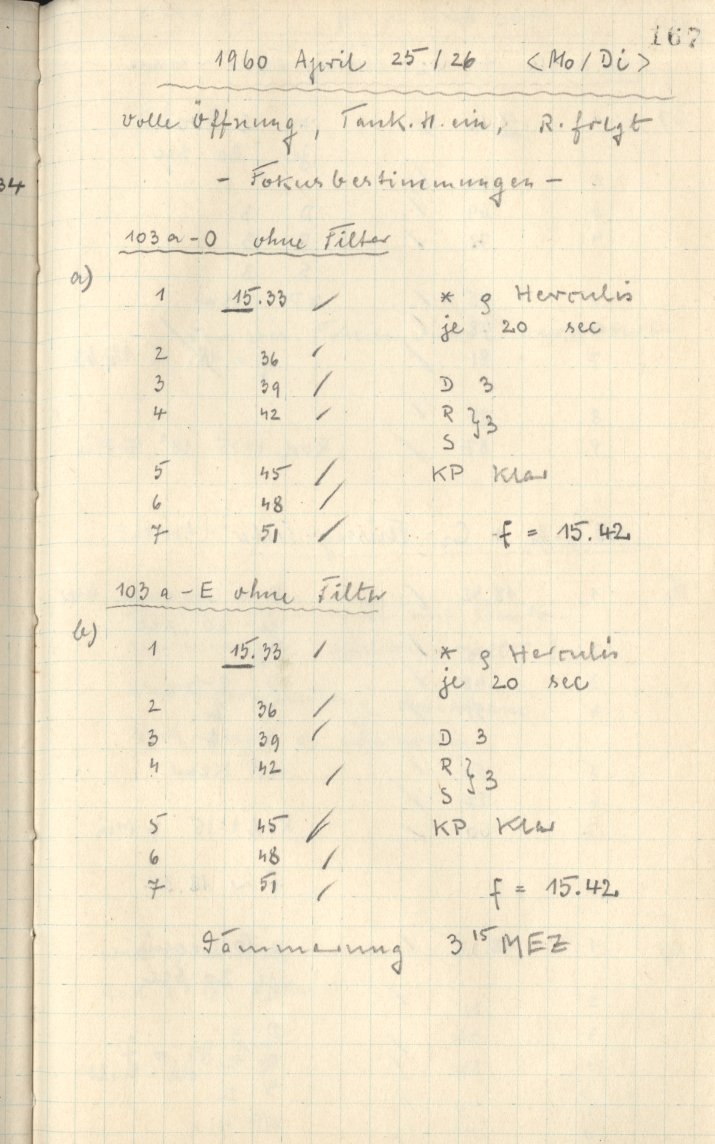 167
1960 April 25/26 <Mo/Di>
volle Öffnung, Tank.H.ein, R. folgt
34
- Fokusbestimmungen -
103 a-O ohne Filter
a)
1 15.33 / * g Herculis
je 20 sec
2 36 /
3 39 / D 3
4 42 / R } 3
S
5 45 / KP Klar
6 48 /
7 51 / f = 15.42
103 a-E ohne Filter
b)
1 15.33 / * g Herculis
je 20 sec
2 36 /
3 39 / D 3
4 42 / R } 3
S
5 45 / KP Klar
6 48 /
7 51 / f = 15.42
Dämmerung 3 15 MEZ